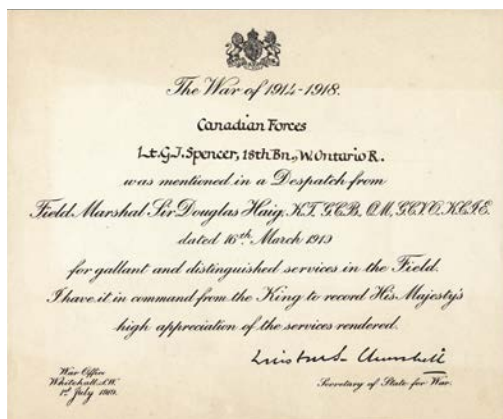 The War of 1914-1918.
Canadian Forces
Lt. G.J. Spencer, 18th Bn., W. Ontario R.
was mentioned in a Despatch from
Field Marshal Sir Douglas Haig, K.T., G.C.B., O.M., G.C.V.O., K.C.I.E.
dated 16th March 1919
for gallant and distinguished services in the Field.
I have it in command from the King to record His Majesty's
high appreciation of the services rendered.
Winston S. Churchill
War Office
Whitehall, S.W.
1st July 1919.
Secretary of State for War.